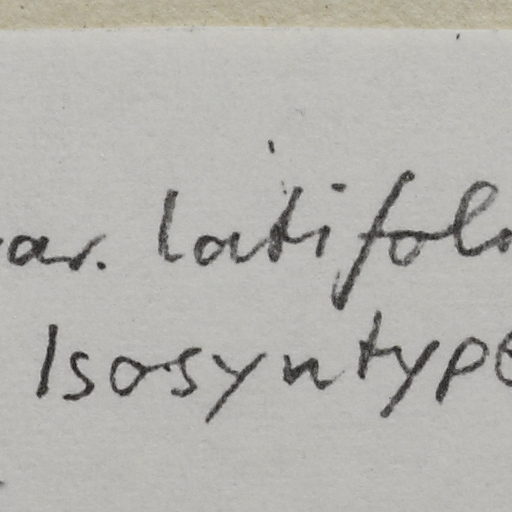 var. latifol
Isosyntype